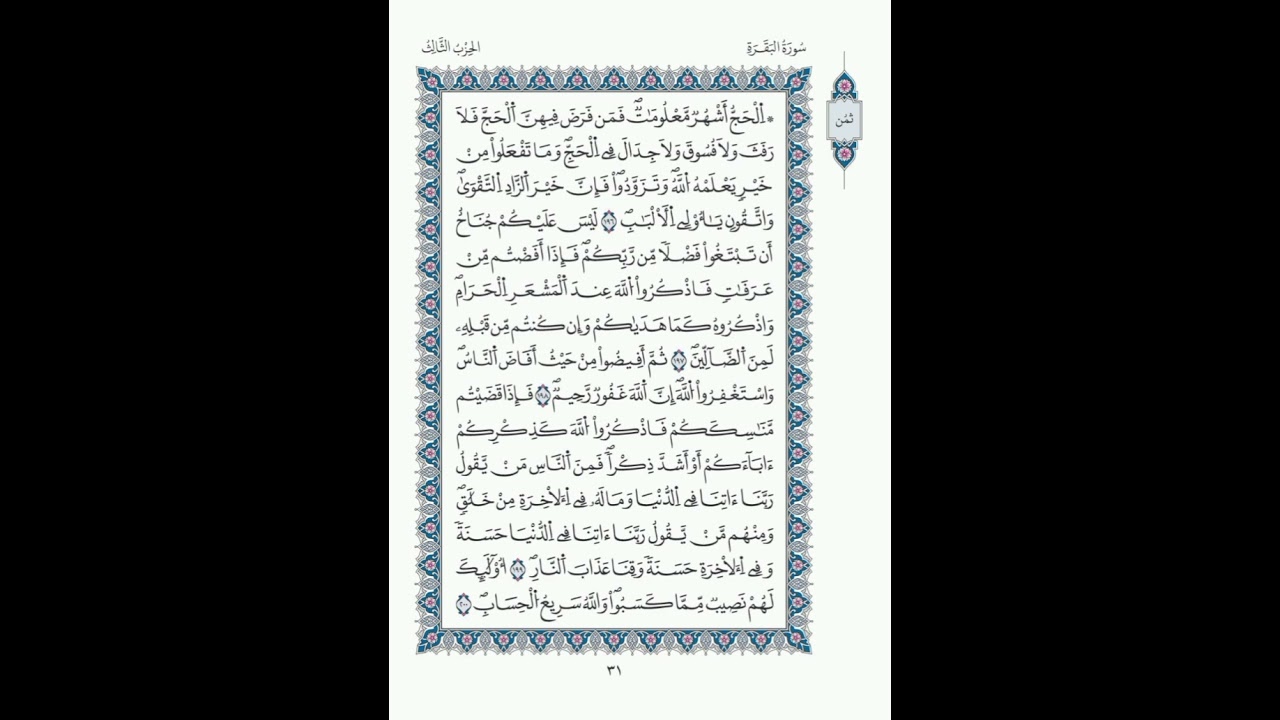 سُورَةُ البَقَرَةِ
الحِزْبُ الثَّالِثُ
ثُمُن
۞ اِ۬لْحَجُّ أَشْهُرٞ مَّعْلُومَٰتٞۖ فَمَن فَرَضَ فِيهِنَّ اَ۬لْحَجَّ فَلَا
رَفَثَ وَلَا فُسُوقَ وَلَا جِدَالَ فِے اِ۬لْحَجِّۖ وَمَا تَفْعَلُواْ مِنْ
خَيْرٖ يَعْلَمْهُ اُ۬للَّهُۖ وَتَزَوَّدُواْۖ فَإِنَّ خَيْرَ اَ۬لزَّادِ اِ۬لتَّقْوَىٰۖ
وَاتَّقُونِ يَٰٓأُوْلِے اِ۬لْأَلْبَٰبِۖ ١٩٦ لَيْسَ عَلَيْكُمْ جُنَاحٌ
أَن تَبْتَغُواْ فَضْلاٗ مِّن رَّبِّكُمْۖ فَإِذَا أَفَضْتُم مِّنْ
عَرَفَٰتٖ فَاذْكُرُواْ اُ۬للَّهَ عِندَ اَ۬لْمَشْعَرِ اِ۬لْحَرَامِۖ
وَاذْكُرُوهُ كَمَا هَدَىٰكُمْ وَإِن كُنتُم مِّن قَبْلِهِۦ
لَمِنَ اَ۬لضَّآلِّينَۖ ١٩٧ ثُمَّ أَفِيضُواْ مِنْ حَيْثُ أَفَاضَ اَ۬لنَّاسُۖ
وَاسْتَغْفِرُواْ اُ۬للَّهَۖ إِنَّ اَ۬للَّهَ غَفُورٞ رَّحِيمٞۖ ١٩٨ فَإِذَا قَضَيْتُم
مَّنَٰسِكَكُمْ فَاذْكُرُواْ اُ۬للَّهَ كَذِكْرِكُمْ
ءَابَآءَكُمْ أَوْ أَشَدَّ ذِكْراٗۖ فَمِنَ اَ۬لنَّاسِ مَنْ يَّقُولُ
رَبَّنَا ءَاتِنَا فِے اِ۬لدُّنْيَا وَمَا لَهُۥ فِے اِ۬لْأٓخِرَةِ مِنْ خَلَٰقٖۖ
وَمِنْهُم مَّنْ يَّقُولُ رَبَّنَا ءَاتِنَا فِے اِ۬لدُّنْيَا حَسَنَةٗ
وَفِے اِ۬لْأٓخِرَةِ حَسَنَةٗ وَقِنَا عَذَابَ اَ۬لنَّارِۖ ١٩٩ أُوْلَٰٓئِكَ
لَهُمْ نَصِيبٞ مِّمَّا كَسَبُواْۖ وَاللَّهُ سَرِيعُ اُ۬لْحِسَابِۖ ٢٠٠
٣١